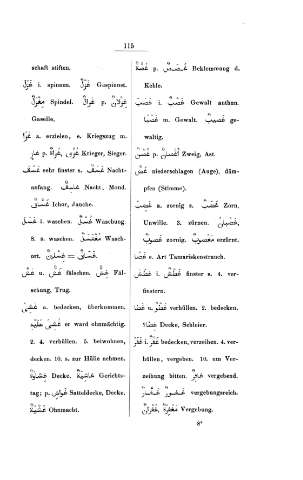 115
schaft stiften.
غَزَلَ i. spinnen. غَزْل Gespinnst.
مِغْزَل Spindel. غَزَال p. غِزْلَان
Gazelle.
غَزَا u. erzielen, e. Kriegszug m.
غَازٍ p. غُزَاة, غُزًّى Krieger, Sieger.
غَسَقَ sehr finster s. غَسَق Nacht-
anfang. غَاسِق Nacht. Mond.
غَسَّاق Ichor, Jauche.
غَسَلَ i. waschen. غَسْل Waschung.
8. s. waschen. مُغْتَسَل Wasch-
ort. غِسْلِين =
غَشَّ u. fälschen. غِشّ Fäl-
schung, Trug.
غَشِىَ a. bedecken, überkommen.
غُشِىَ عَلَيْهِ er ward ohnmächtig.
2. 4. verhüllen. 5. beiwohnen,
decken. 10. s. zur Hülle nehmen.
غِشَاوَة Decke. غَاشِيَة Gerichts-
tag; p. غَوَاشٍ Satteldecke, Decke.
غَشْيَة Ohnmacht.
غُصَّة p. غُصَص Beklemmung d.
Kehle.
غَصَبَ i. غَصْب Gewalt anthun.
غَصْبًا m. Gewalt. غَصِيب ge-
waltig.
غُصْن p. أَغْصَان Zweig, Ast.
غَضَّ niederschlagen (Auge), däm-
pfen (Stimme).
غَضِبَ a. zornig s. غَضَب Zorn,
Unwille. 3. zürnen. غَضْبَان,
غَضُوب zornig. مَغْضُوب erzürnt.
غَضًا e. Art Tamariskenstrauch.
غَطَشَ i. finster s. 4. ver-
finstern.
غَطَا u. verhüllen. 2. bedecken.
غِطَاء Decke, Schleier.
غَفَرَ i. غَفْر bedecken, verzeihen. 4. ver-
hüllen, vergeben. 10. um Ver-
zeihung bitten. غَافِر vergebend.
غَفُور غَفَّار vergebungsreich.
مَغْفِرَة, غُفْرَان Vergebung.
8*